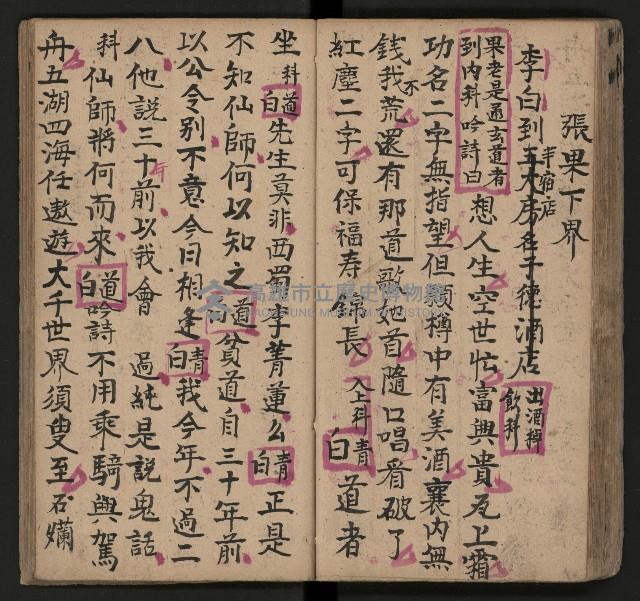 張果下界
李白到半宿店五大房名子德酒店出酒掛飲科
果老是通玄道者到內科吟詩白想人生空世忙富興貴瓦上霜
功名二字無指望但願樽中有美酒裏內無
錢我不荒還有那道歌她首隨口唱看破了
紅塵二字可保福寿錦長入上科青白道者
坐科道白先生莫非西蜀李菁蓮么青白正是
不知仙師何以知之道白貧道自三十年前
以公令别不意今日相逢青白我今年不過二
八他說三十年前以我會過純是說鬼話
科仙師將何而來道白吟詩不用乘騎與駕
舟五湖四海任遨遊大千世界須叟至石爛
高雄市立歷史博物館
KAOHSIUNG MUSEUM OF HISTORY